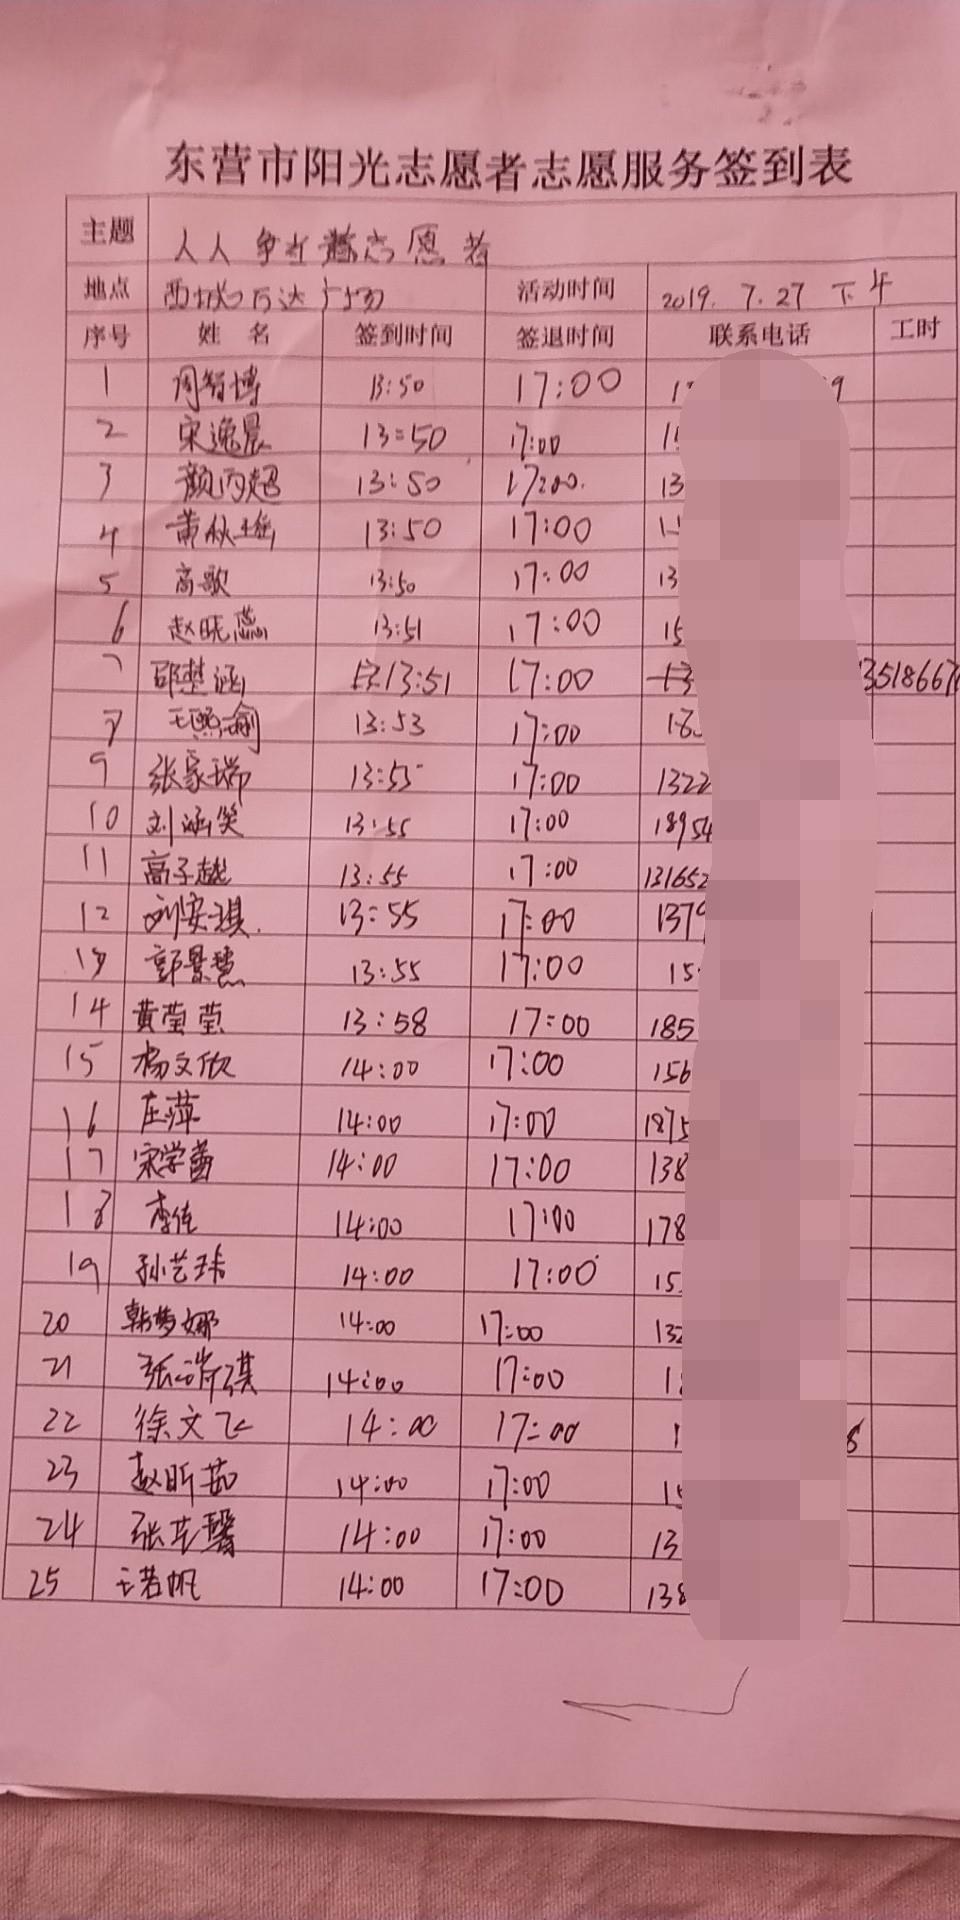 东营市阳光志愿者志愿服务签到表
主题 人人争当志愿者
地点 西城万达广场 活动时间 2019. 7.27 下午
序号 姓 名 签到时间 签退时间 联系电话 工时
1 周智博 13:50 17:00 9
2 宋逸晨 13=50 17:00
3 颜丙超 13:50 17:00. 13
4 黄秋瑶 13:50 17:00
5 高歌 13:50 17:00 13
6 赵晓蕊 13:51 17:00 15
7 邵楚涵 13:51 17:00 13 3518667
7 王熙瑜 13:53 17:00 18
9 张家瑞 13:55 17:00 1322
10 刘涵笑 13:55 17:00 18954
11 高子越 13:55 17:00 131652
12 刘安琪. 13=55 17:00 1379
13 郭景慧 13:55 17:00 15
14 黄莹莹 13:58 17:00 185
15 杨文欣 14:00 17:00 156
16 庄萍 14:00 17:00 1875
17 宋学茜 14:00 17:00 138
18 李佳 14:00 17:00 178
19 孙艺玮 14:00 17:00 15
20 韩梦娜 14:00 17:00 132
21 张 琪 14:00 17:00 1
22 徐文飞 14:00 17=00 1 8
23 赵昕茹 14:00 17:00 15
24 张芷馨 14:00 17:00 13
25 王若帆 14:00 17:00 138